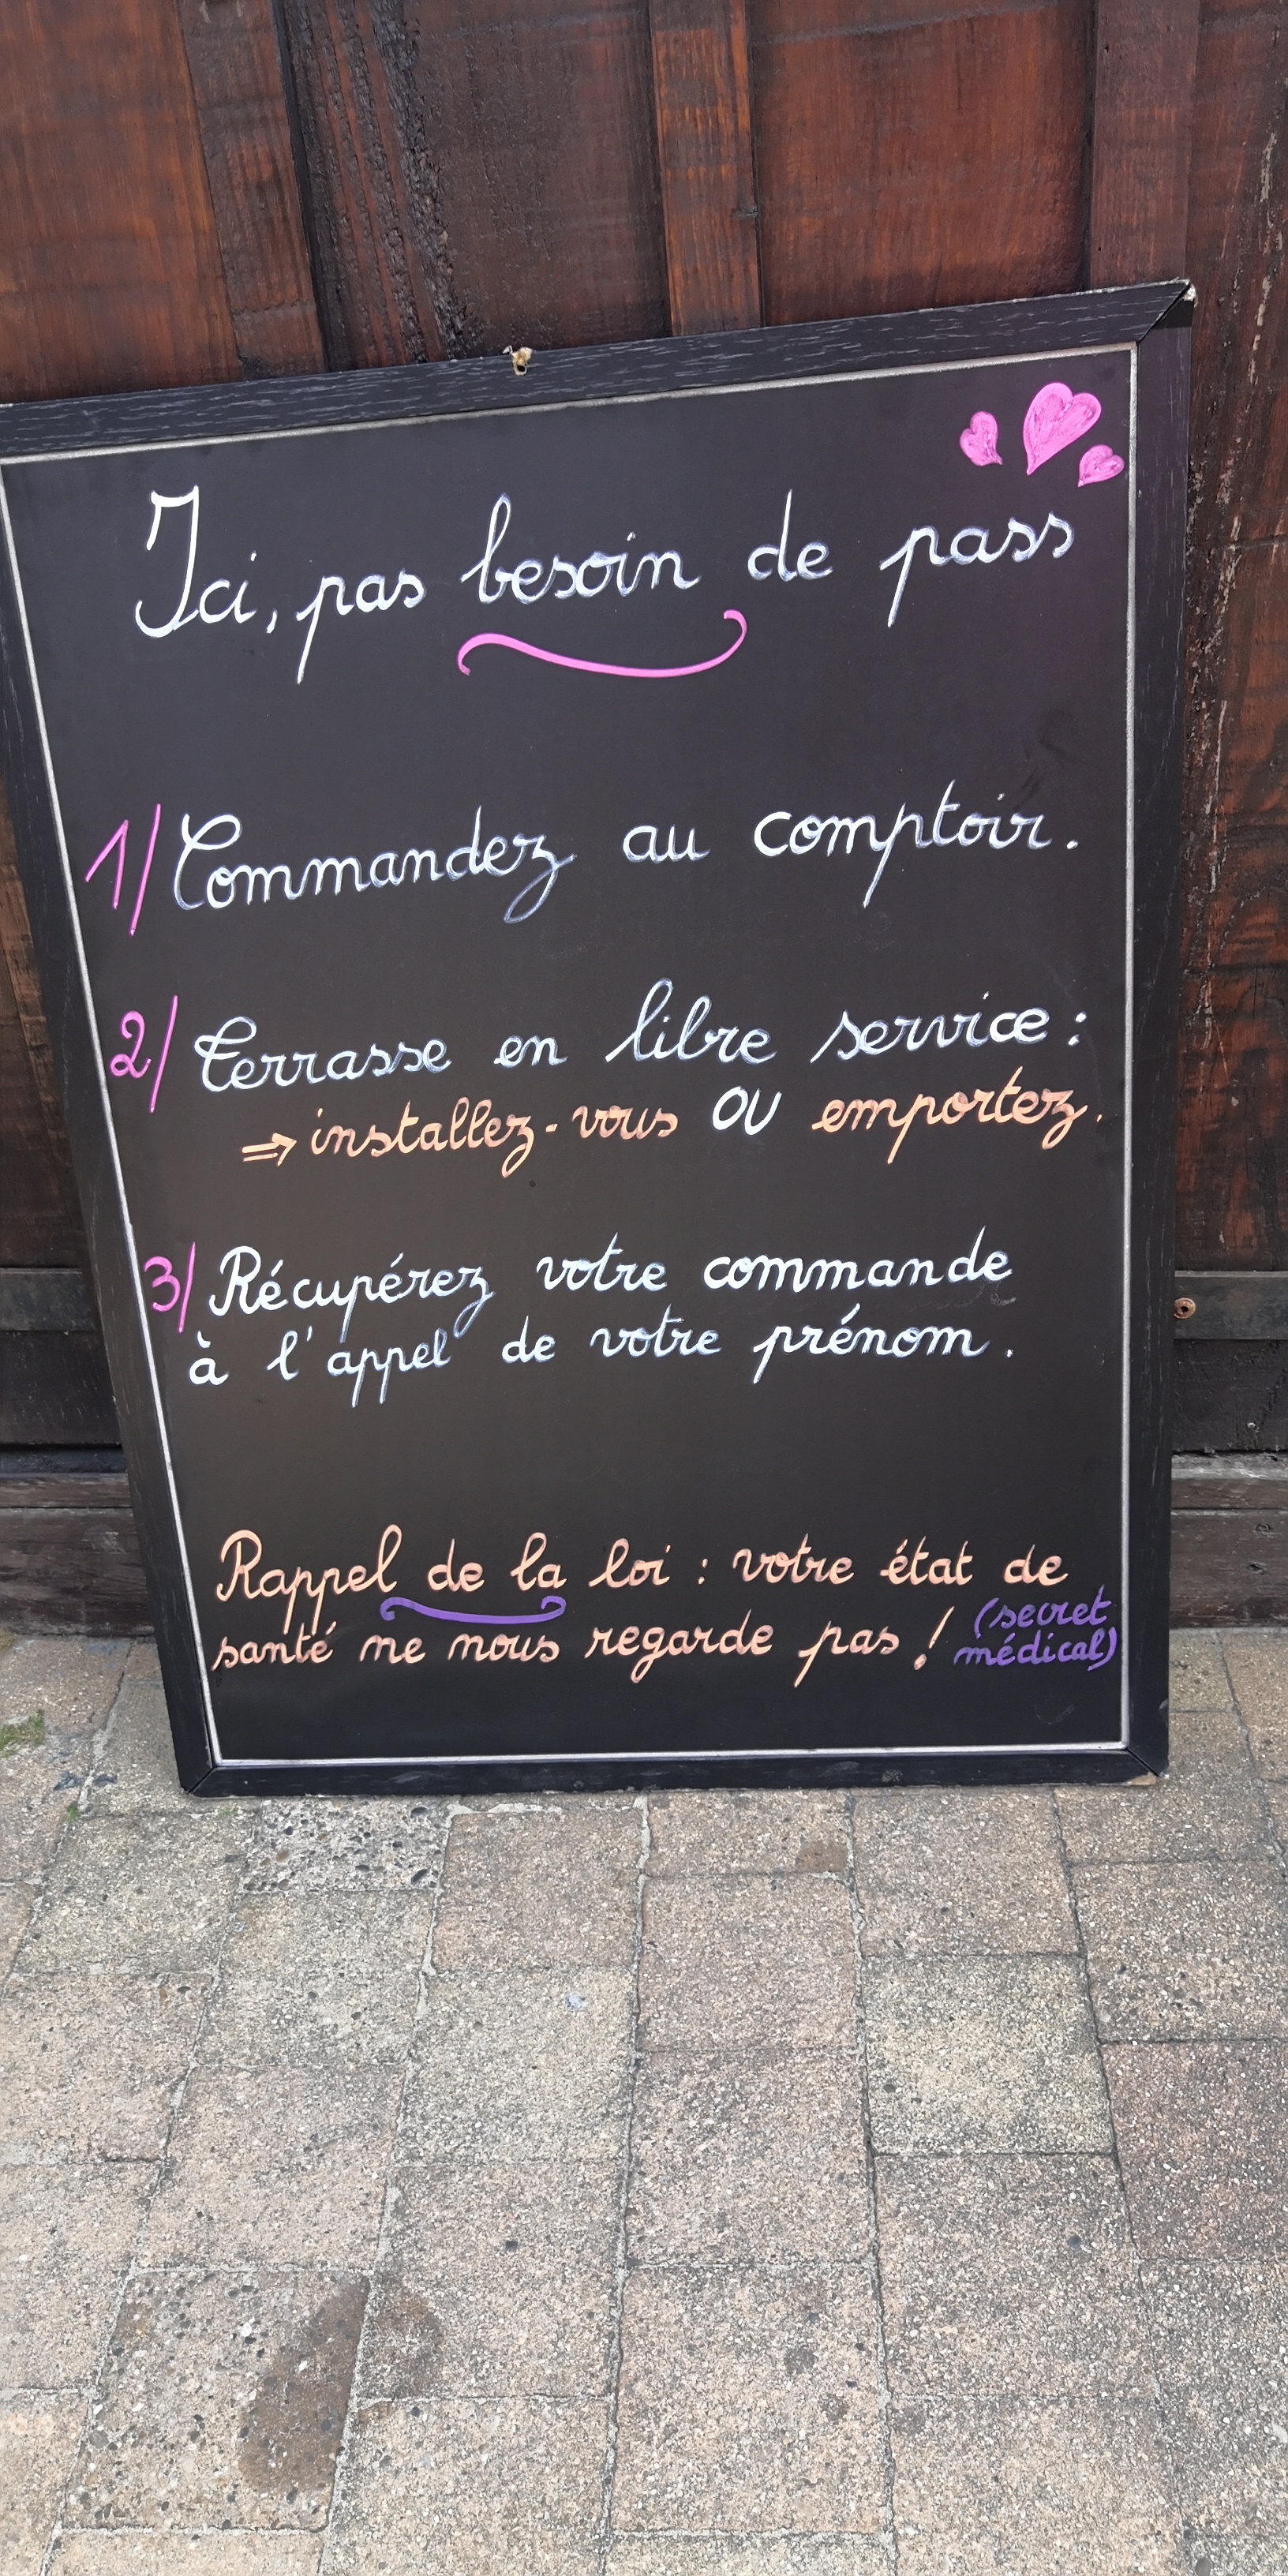 Ici, pas besoin de pass
1/ Commandez au comptoir.
2/ Terrasse en libre service :
⇒ installez-vous OU emportez.
3/ Récupérez votre commande
à l'appel de votre prénom.
Rappel de la loi : votre état de
santé ne nous regarde pas ! (secret
médical)